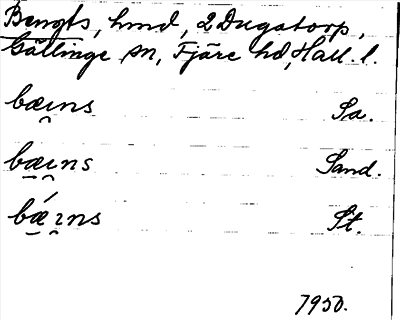 Bengts, hmd, 2 Dugatorp,
Gällinge sn, Fjäre hd, Hall. l.
bæı̯ns Sa.
bæ̠ı̯ns Sand.
bǽ̠ı̯ns St.
1950.